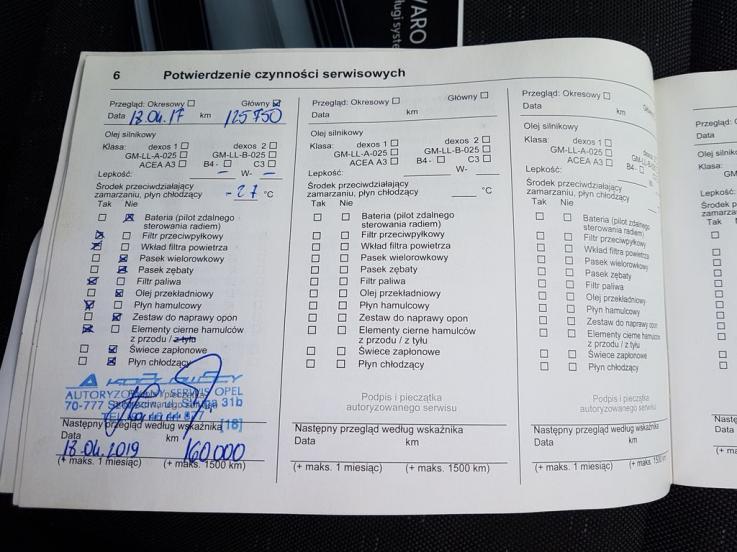 VARO
ługi syste
6 Potwierdzenie czynności serwisowych
Przegląd: Okresowy ☐ Główny ☒
Data 13.04.17 km 125750
Olej silnikowy
Klasa: dexos 1 ☐ dexos 2 ☐
GM-LL-A-025 ☐ GM-LL-B-025 ☐
ACEA A3 ☐ B4 - ☐ C3 ☐
Lepkość: – W- –
Środek przeciwdziałający
zamarzaniu, płyn chłodzący -27 °C
Tak Nie
☐ ☒ Bateria (pilot zdalnego
sterowania radiem)
☒ ☐ Filtr przeciwpyłkowy
☒ ☐ Wkład filtra powietrza
☐ ☒ Pasek wielorowkowy
☐ ☒ Pasek zębaty
☒ ☐ Filtr paliwa
☐ ☒ Olej przekładniowy
☒ ☐ Płyn hamulcowy
☐ ☒ Zestaw do naprawy opon
☒ ☐ Elementy cierne hamulców
z przodu / z tyłu
☐ ☒ Świece zapłonowe
☐ ☒ Płyn chłodzący
AUTORYZOWANY SERWIS OPEL
70-777 Szczecin, ul. 31b
[18]
Następny przegląd według wskaźnika
Data km
13.04.2019 160.000
(+ maks. 1 miesiąc) (+ maks. 1500 km)
Przegląd: Okresowy ☐ Główny ☐
Data km
Olej silnikowy
Klasa: dexos 1 ☐ dexos 2 ☐
GM-LL-A-025 ☐ GM-LL-B-025 ☐
ACEA A3 ☐ B4 - ☐ C3 ☐
Lepkość: W-
Środek przeciwdziałający
zamarzaniu, płyn chłodzący °C
Tak Nie
☐ ☐ Bateria (pilot zdalnego
sterowania radiem)
☐ ☐ Filtr przeciwpyłkowy
☐ ☐ Wkład filtra powietrza
☐ ☐ Pasek wielorowkowy
☐ ☐ Pasek zębaty
☐ ☐ Filtr paliwa
☐ ☐ Olej przekładniowy
☐ ☐ Płyn hamulcowy
☐ ☐ Zestaw do naprawy opon
☐ ☐ Elementy cierne hamulców
z przodu / z tyłu
☐ ☐ Świece zapłonowe
☐ ☐ Płyn chłodzący
Podpis i pieczątka
autoryzowanego serwisu
Następny przegląd według wskaźnika
Data km
(+ maks. 1 miesiąc) (+ maks. 1500 km)
Przegląd: Okresowy ☐
Data km
Olej silnikowy
Klasa: dexos 1 ☐ dexos 2
GM-LL-A-025 ☐
ACEA A3 ☐ B4 - ☐
Lepkość:
Środek przeciwdziałający
zamarzaniu, płyn chłodzący
Tak Nie
☐ ☐ Bateria (pilot zdalnego
sterowania radiem)
☐ ☐ Filtr przeciwpyłkowy
☐ ☐ Wkład filtra powietrza
☐ ☐ Pasek wielorowkowy
☐ ☐ Pasek zębaty
☐ ☐ Filtr paliwa
☐ ☐ Olej przekładniowy
☐ ☐ Płyn hamulcowy
☐ ☐ Zestaw do naprawy opon
☐ ☐ Elementy cierne hamulców
z przodu / z tyłu
☐ ☐ Świece zapłonowe
☐ ☐ Płyn chłodzący
Podpis i pieczątka
autoryzowanego serwisu
Następny przegląd według wskaźnika
Data km
(+ maks. 1 miesiąc) (+ maks. 1500 km
Przegląd:
Data
Olej silnik
Klasa:
Lepkość:
Środek p
zamarza
Tak